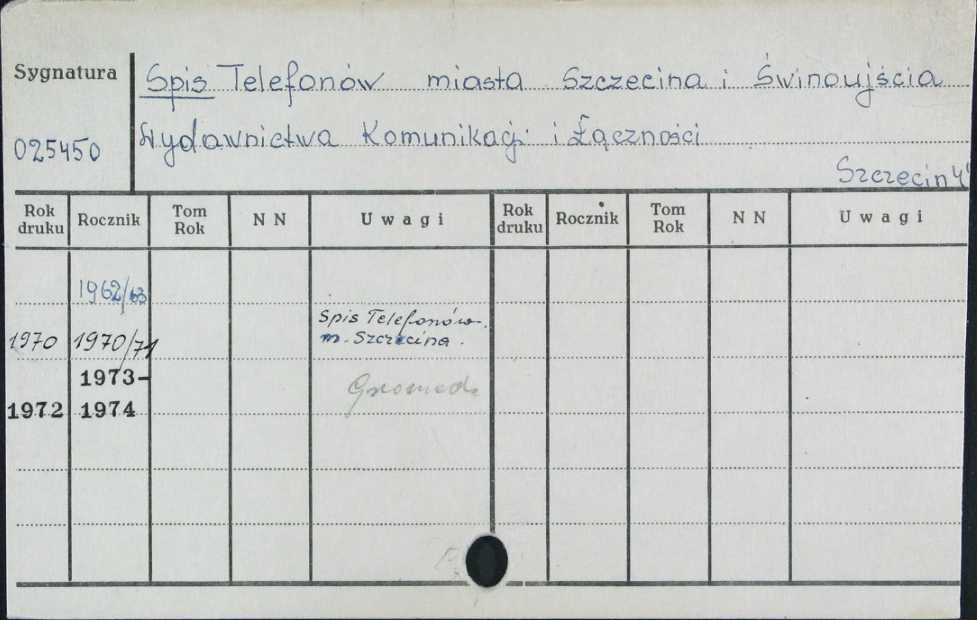 Sygnatura
Spis Telefonów miasta Szczecina i Świnoujścia
025450
Wydawnictwa Komunikacji i Łączności
Szczecin
Rok druku Rocznik Tom Rok N N Uwagi Rok druku Rocznik Tom Rok N N Uwagi
1962/63
1970 1970/71 Spis Telefonów
m. Szczecina.
1973-
1972 1974